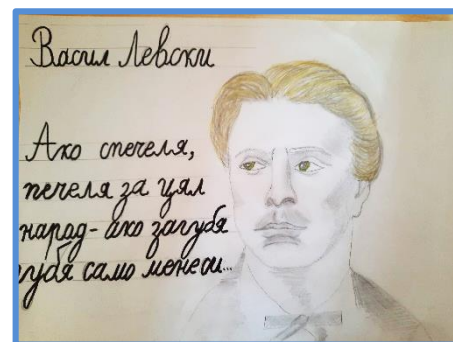 Васил Левски
Ако спечеля,
печеля за цял
народ- ако загубя
губя само менеси...